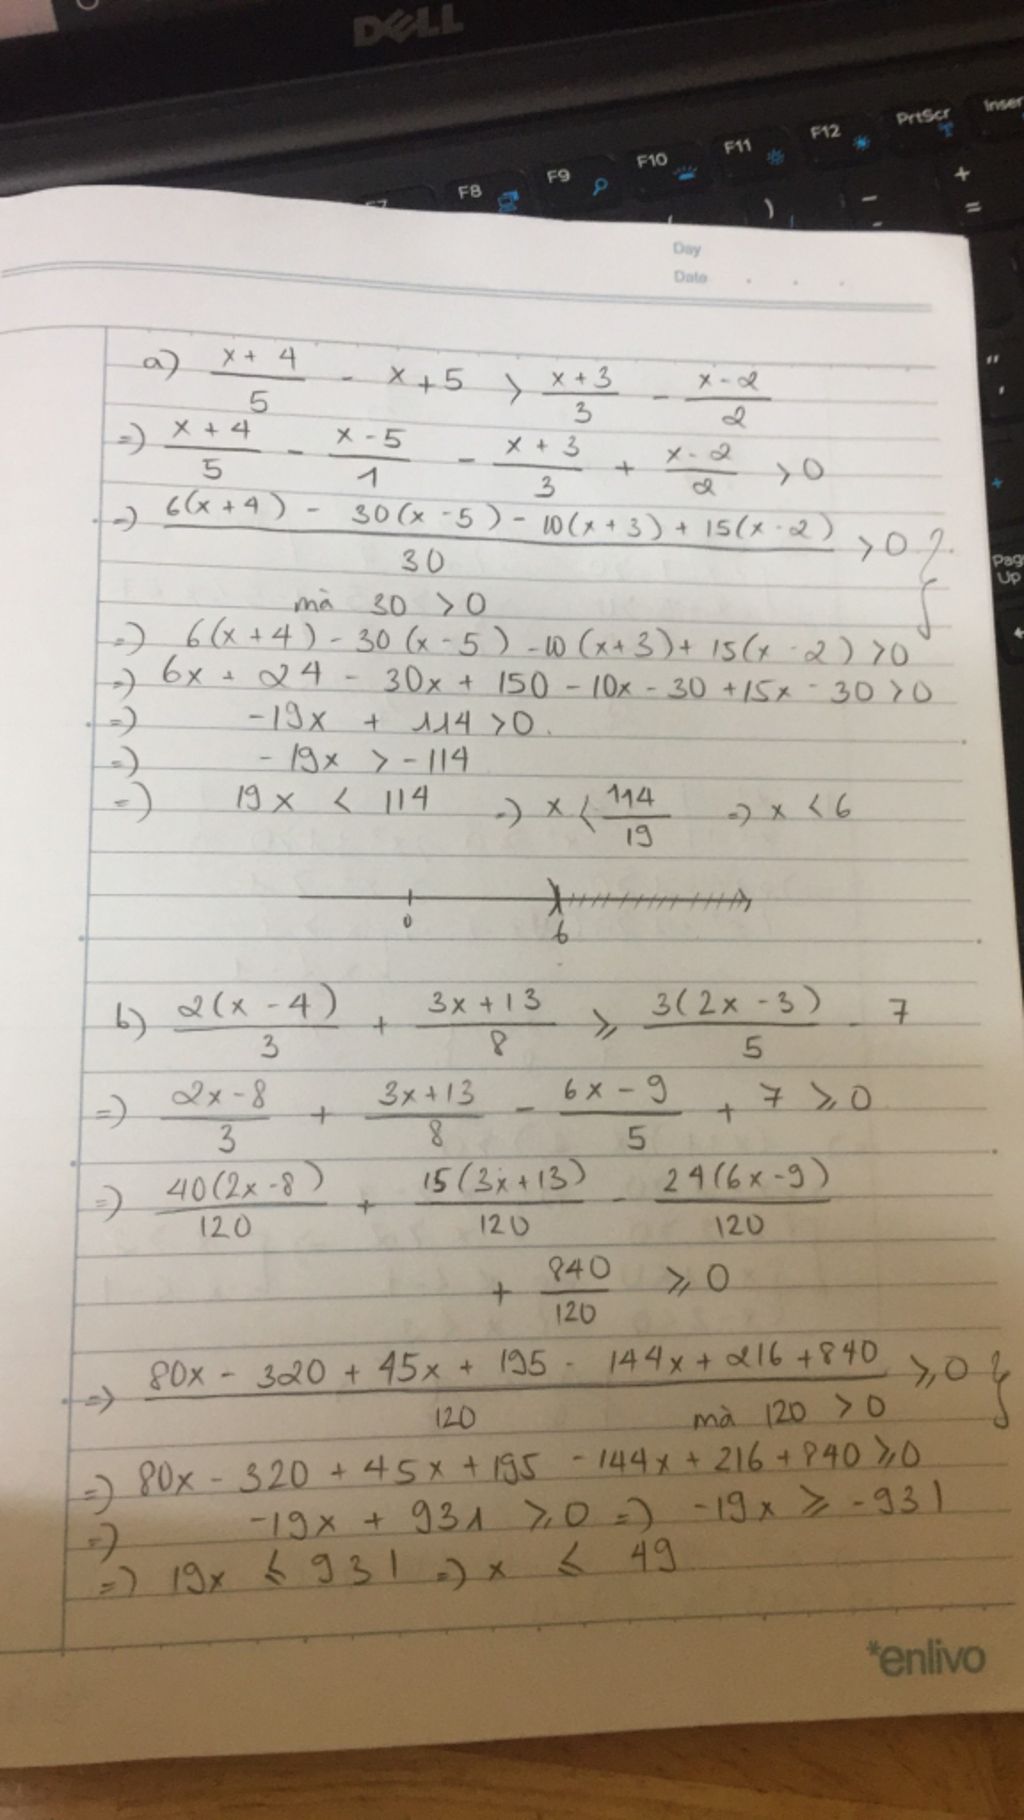 DELL
F7 F8 F9 F10 F11 F12 PrtScr Inser
Pag
Up
Day
Date
a) (x + 4)/5 - x + 5 > (x + 3)/3 - (x - 2)/2
=) (x + 4)/5 - (x - 5)/1 - (x + 3)/3 + (x - 2)/2 > 0
=) (6(x + 4) - 30(x - 5) - 10(x + 3) + 15(x - 2))/30 > 0 }
mà 30 > 0
=) 6(x + 4) - 30(x - 5) - 10(x + 3) + 15(x - 2) > 0
=) 6x + 24 - 30x + 150 - 10x - 30 + 15x - 30 > 0
=) -19x + 114 > 0.
=) -19x > -114
=) 19x < 114 =) x < 114/19 =) x < 6
0 6
b) 2(x - 4)/3 + (3x + 13)/8 ⩾ 3(2x - 3)/5 - 7
=) (2x - 8)/3 + (3x + 13)/8 - (6x - 9)/5 + 7 ⩾ 0
=) 40(2x - 8)/120 + 15(3x + 13)/120 - 24(6x - 9)/120
+ 840/120 ⩾ 0
=) (80x - 320 + 45x + 195 - 144x + 216 + 840)/120 ⩾ 0 }
mà 120 > 0
=) 80x - 320 + 45x + 195 - 144x + 216 + 840 ⩾ 0
=) -19x + 931 ⩾ 0 =) -19x ⩾ -931
=) 19x ⩽ 931 =) x ⩽ 49
*enlivo